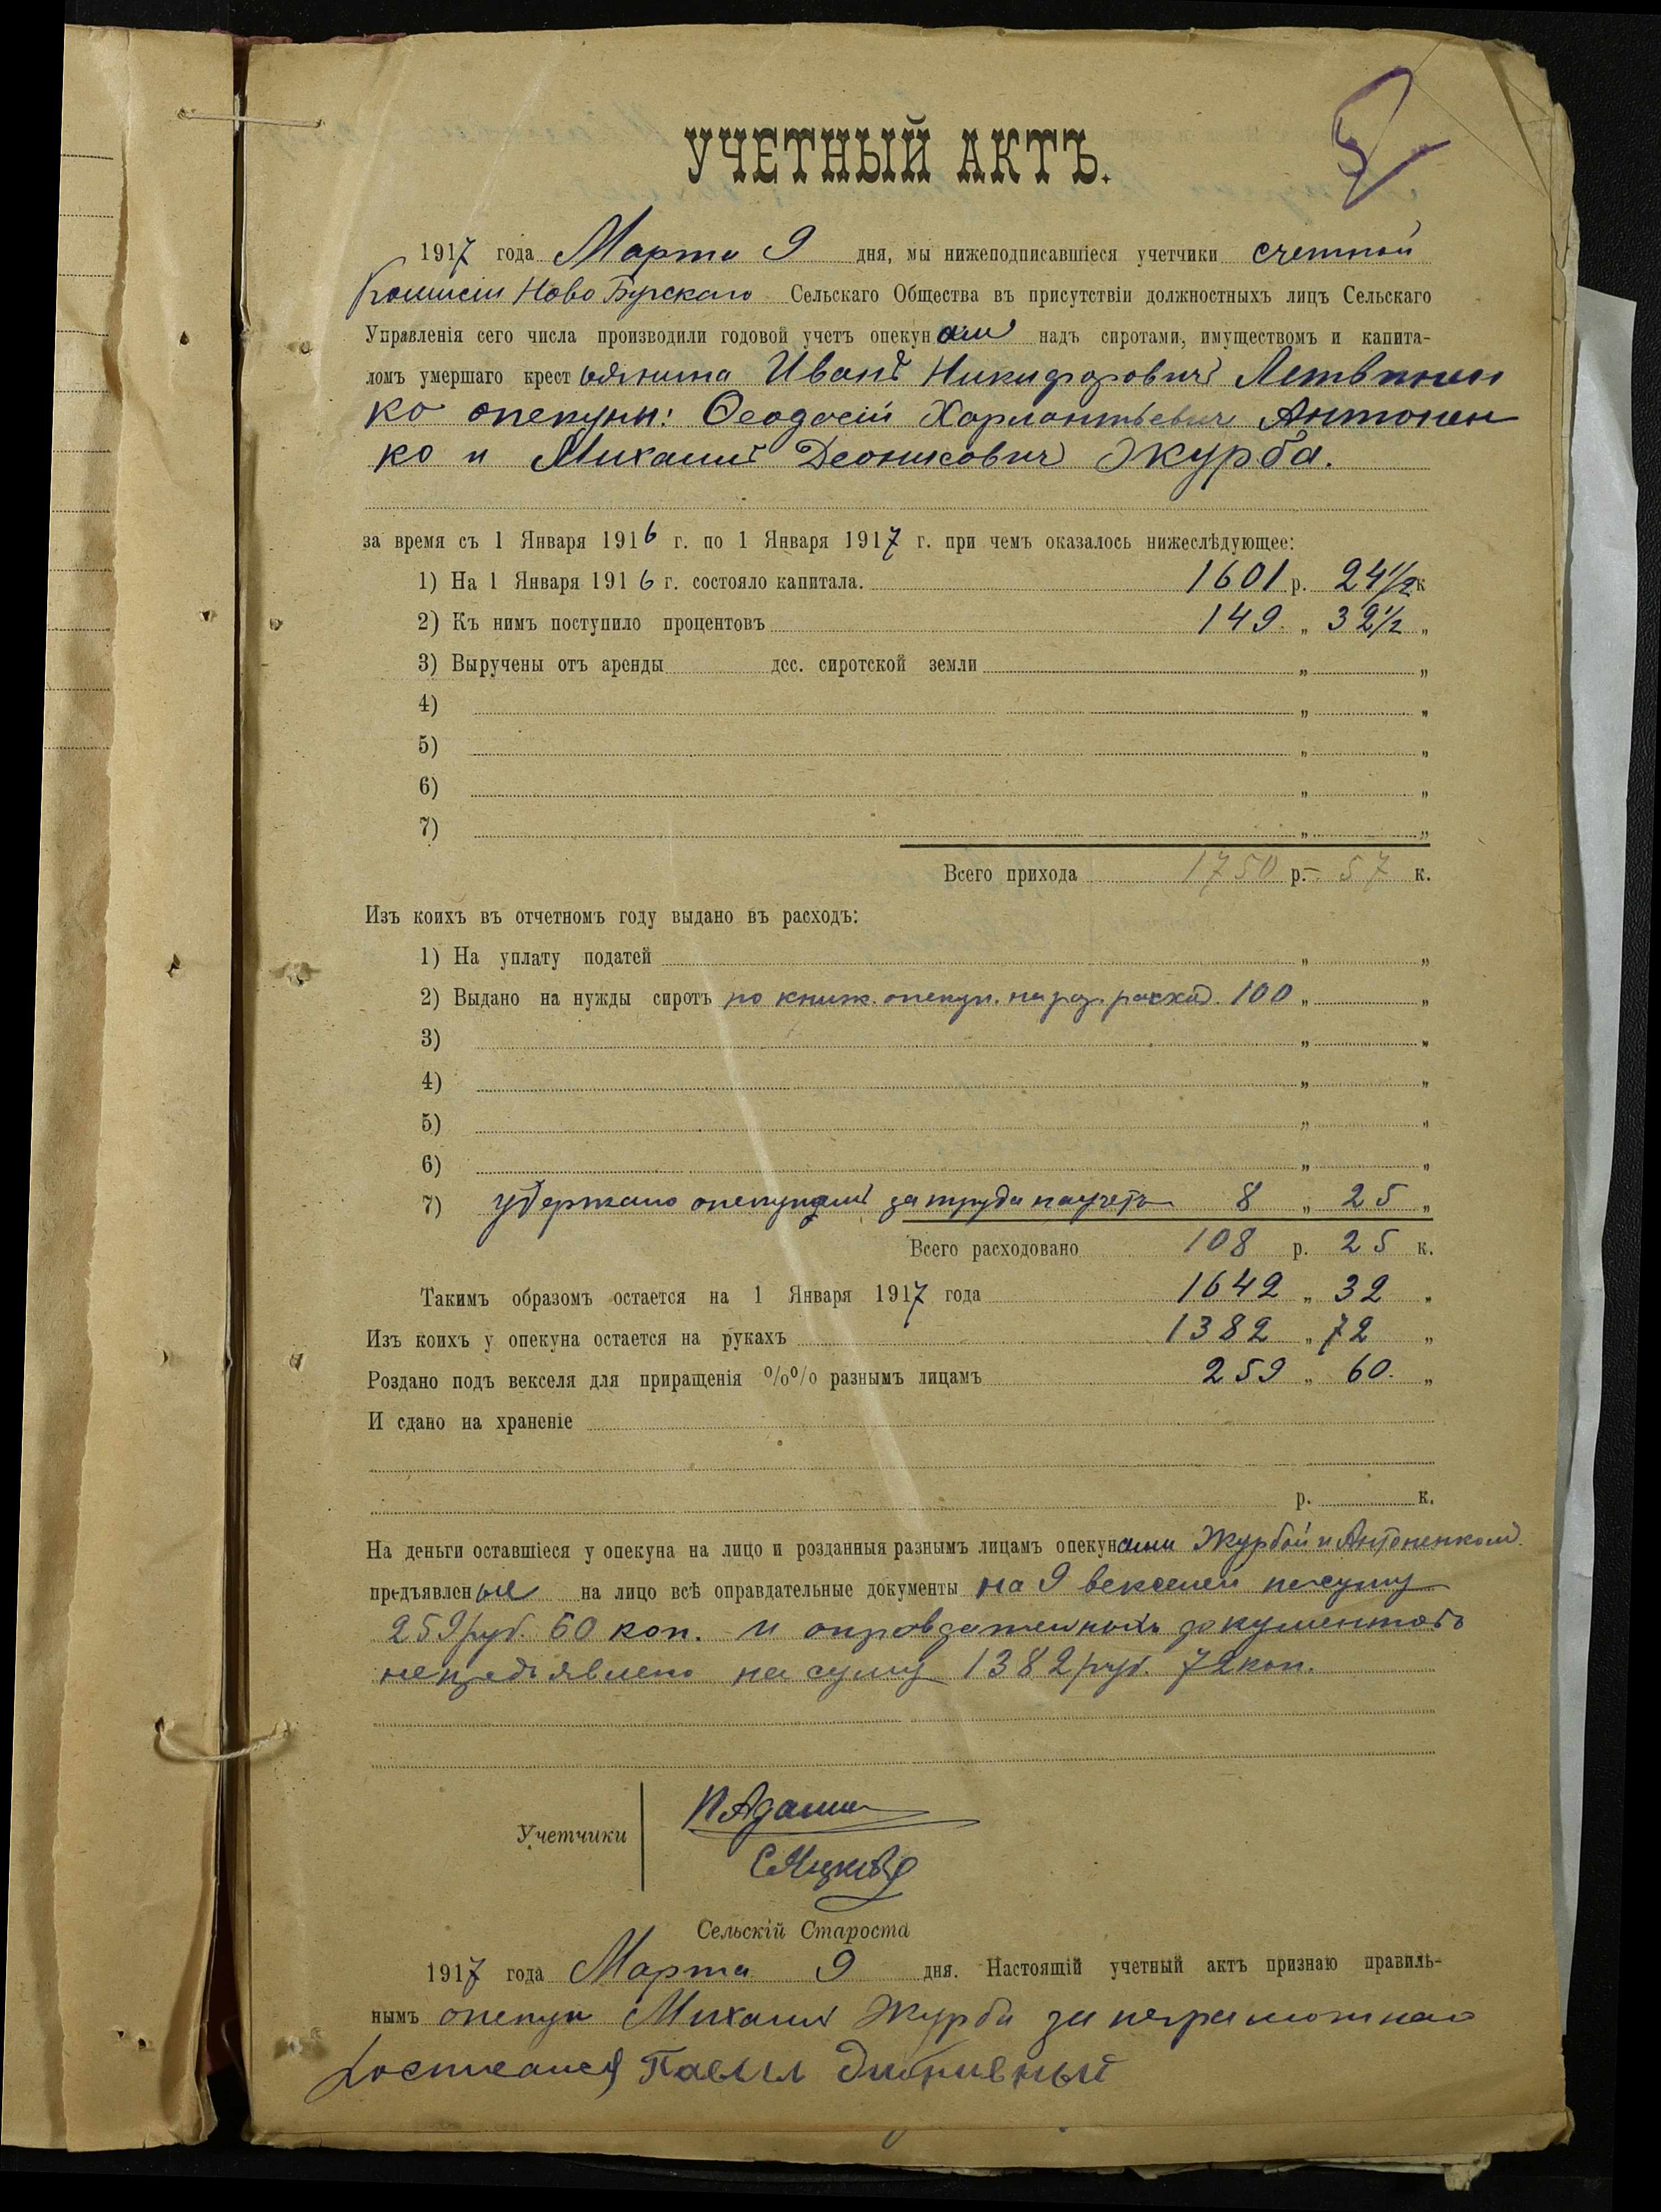 УЧЕТНЫЙ АКТЪ.
1917 года Марта 9 дня, мы нижеподписавшіеся учетчики счетной
Комисіи Ново Бугскаго Сельскаго Общества въ присутствіи должностныхъ лицъ Сельскаго
Управленія сего числа производили годовой учетъ опекунами надъ сиротами, имуществомъ и капита-
ломъ умершаго крестьянина Иванъ Никифоровичъ Летвинен
ко опекуны: Ѳеодосій Харлантьевич Антонен
ко и Михаилъ Деонисович Журба.
за время съ 1 Января 1916 г. по 1 Января 1917 г. при чемъ оказалось нижеслѣдующее:
1) На 1 Января 1916 г. состояло капитала. 1601 р. 24 1/2 к
2) Къ нимъ поступило процентовъ 149 „ 32 1/2 „
3) Выручены отъ аренды дес. сиротской земли „ „
4) „ „
5) „ „
6) „ „
7) „ „
Всего прихода 1750 р.- 57 к.
Изъ коихъ въ отчетномъ году выдано въ расходъ:
1) На уплату податей „ „
2) Выдано на нужды сиротъ по книж. опекун. на раз. расход. 100 „ „
3) „ „
4) „ „
5) „ „
6) „ „
7) удержано опекунами за труды на учетъ 8 „ 25 „
Всего расходовано 108 р. 25 к.
Такимъ образомъ остается на 1 Января 1917 года 1642 „ 32 „
Изъ коихъ у опекуна остается на рукахъ 1382 „ 72 „
Роздано подъ векселя для приращенія %% разнымъ лицамъ 259 „ 60. „
И сдано на храненіе
р. к.
На деньги оставшіеся у опекуна на лицо и розданныя разнымъ лицамъ опекунами Журбой и Антоненком
предъявленые на лицо всѣ оправдательные документы на 9 векселей на суму
259 руб. 60 коп. и оправдательныхъ документовъ
не предъявлено на суму 1382 руб. 72 коп.
Учетчики
Сельскій Староста
1917 года Марта 9 дня. Настоящій учетный актъ признаю правиль-
нымъ опекун Михаил Журба за неграмотнаго
Павел